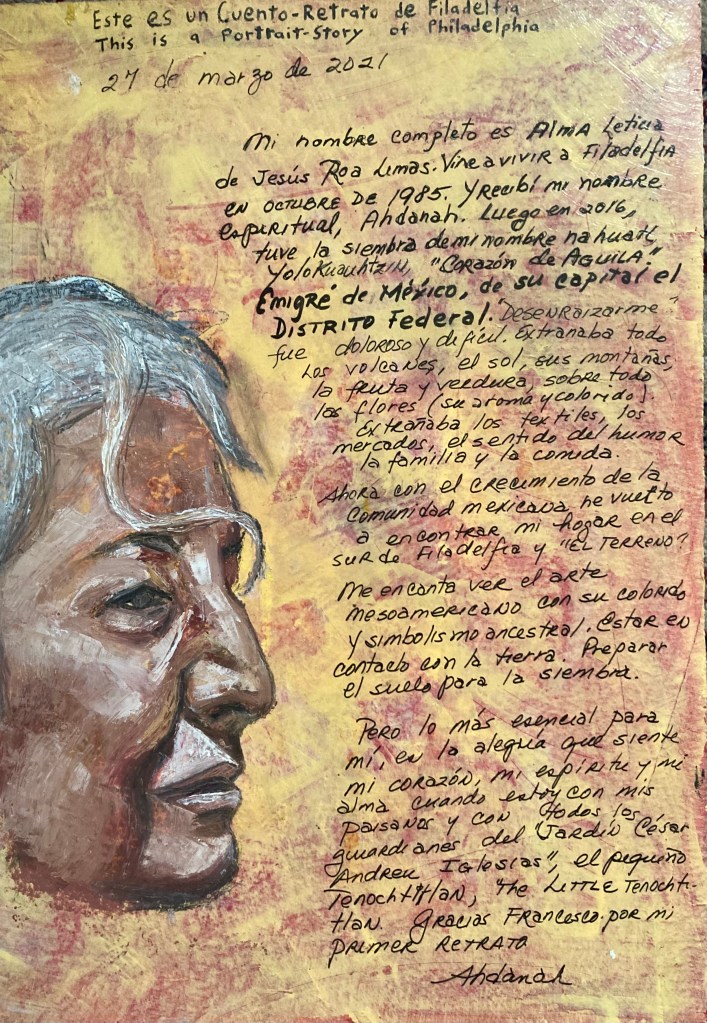 Este es un Cuento-Retrato de Filadelfia
This is a Portrait-Story of Philadelphia
27 de marzo de 2021
Mi nombre completo es Alma Leticia
de Jesús Roa Limas. Vine a vivir a Filadelfia
en octubre de 1985. Y recibí mi nombre
espiritual, Ahdanah. Luego en 2016,
tuve la siembra de mi nombre nahuatl
Yolokuauhtzin, "Corazón de Aguila".
Emigré de México, de su capital el
Distrito Federal. Desenraizarme
fue doloroso y difícil. Extrañaba todo
Los volcanes, el sol, sus montañas,
la fruta y verdura, sobre todo
las flores (su aroma y colorido).
Extrañaba los textiles, los
mercados, el sentido del humor
la familia y la comida.
Ahora con el crecimiento de la
comunidad mexicana, he vuelto
a encontrar mi hogar en el
sur de Filadelfia y "El Terreno"
Me encanta ver el arte
mesoamericano con su colorido
y simbolismo ancestral. Estar en
contacto con la tierra. Preparar
el suelo para la siembra.
Pero lo más esencial para
mí, en la alegría que siente
mi corazón, mi espíritu y mi
alma cuando estoy con mis
paisanos y con todos los
guardianes del "Jardín César
Andreu Iglesias", el pequeño
Tenochtitlan, "The Little Tenochti-
tlan. Gracias Francesco por mi
primer retrato
Ahdanah